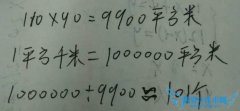 110×90=9900平方米
1平方千米=1000000平方米
1000000÷9900≈101个